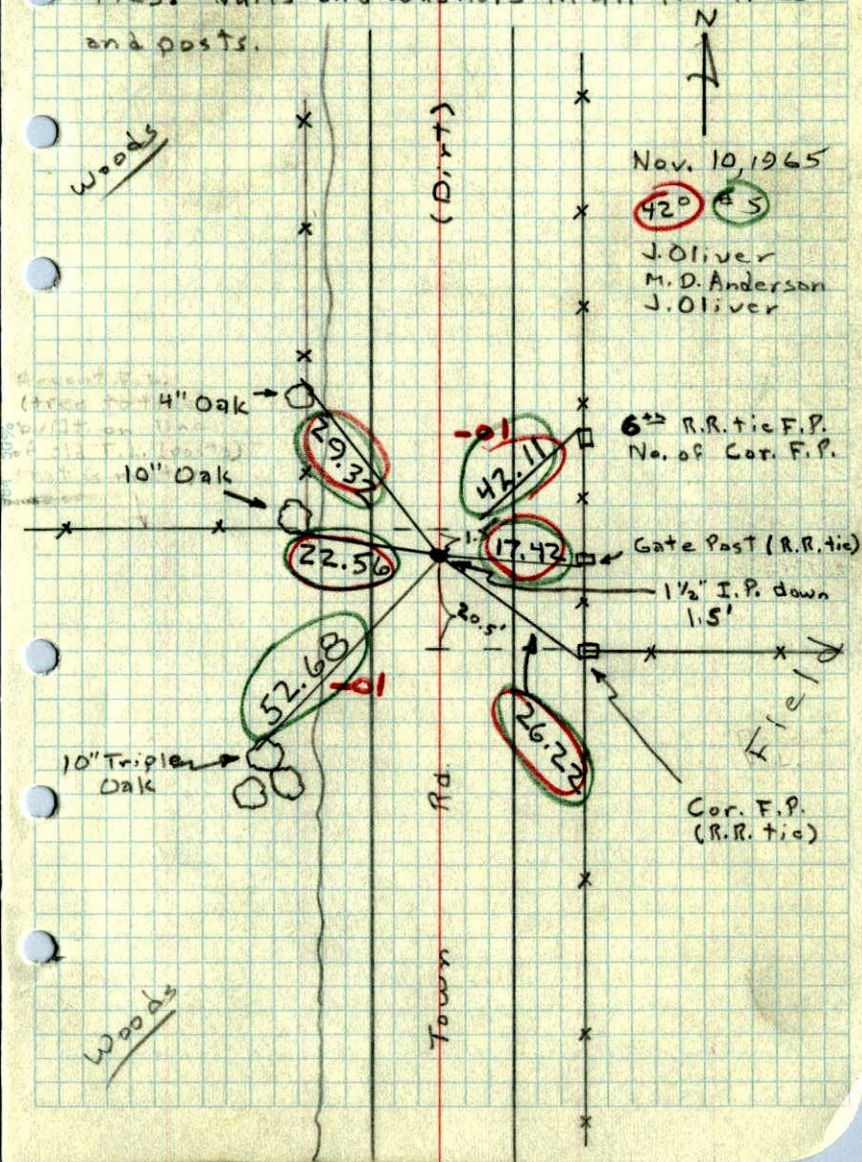 and posts.
N
Woods
(Dirt)
Nov. 10, 1965
42° # 5
J. Oliver
M. D. Anderson
J. Oliver
4" Oak
29.32
-01
42.11
6th R.R. tie F.P.
No. of Cor. F.P.
10" Oak
22.56
17.42
Gate Post (R.R. tie)
1½" I.P. down
1.5'
20.5'
52.68
-01
26.22
Field
10" Triple
Oak
Rd.
Cor. F.P.
(R.R. tie)
Town
Woods